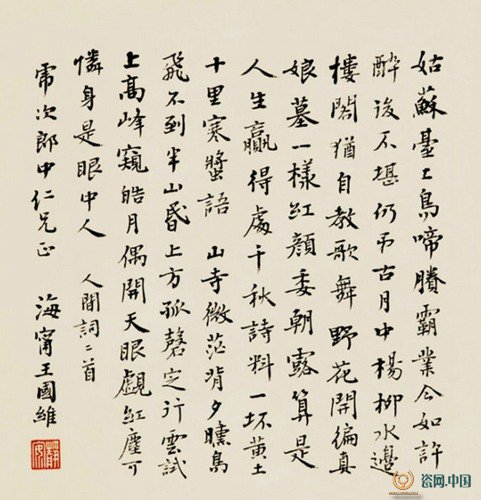 姑蘇臺上烏啼賸霸業今如許
醉後不堪仍弔古月中楊柳水邊
樓閣猶自教歌舞野花開徧真
娘墓一樣紅顏委朝露算是
人生贏得處千秋詩料一坏黃土
十里寒螿語 山寺微茫背夕曛鳥
飛不到半山昏上方孤磬定行雲試
上高峰窺皓月偶開天眼覷紅塵可
憐身是眼中人 人間詞二首
次郎中仁兄正 海甯王國維
靜安
瓷网.中国